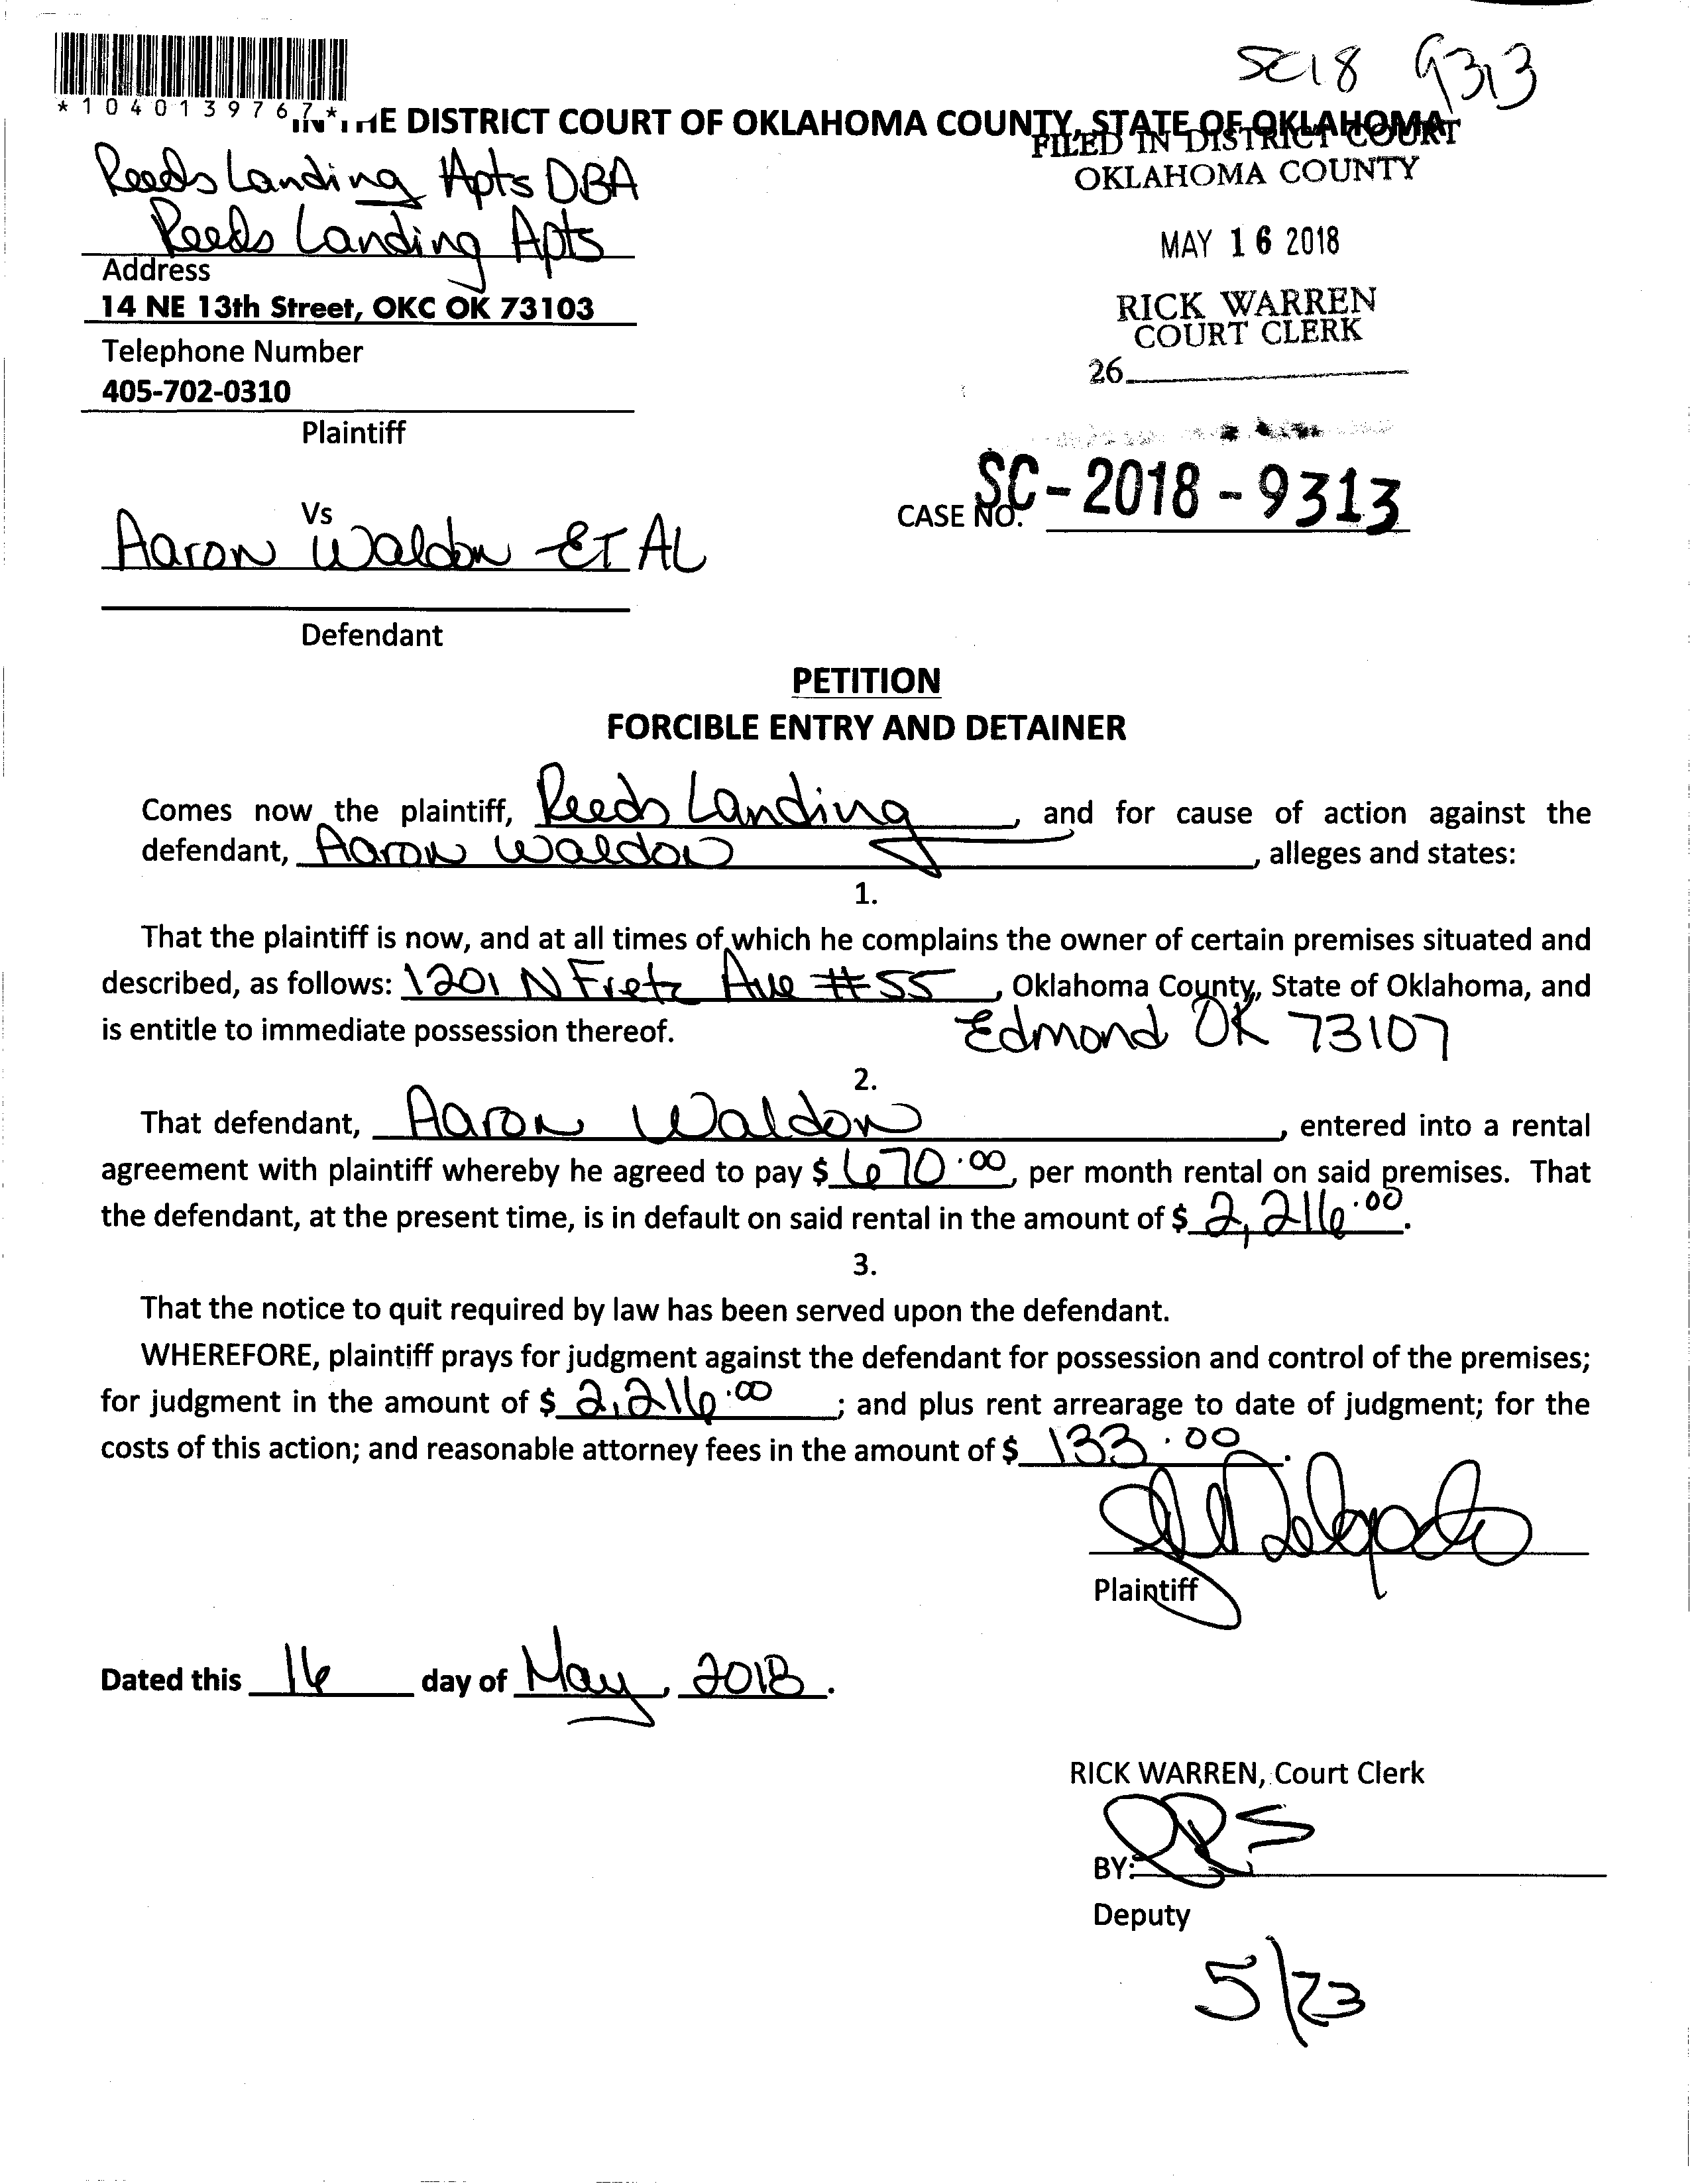 SC18 9313
*1040139767*
IN THE DISTRICT COURT OF OKLAHOMA COUNTY, STATE OF OKLAHOMA
FILED IN DISTRICT COURT
OKLAHOMA COUNTY
Reeds Landing Apts DBA
Reeds Landing Apts
MAY 16 2018
Address
14 NE 13th Street, OKC OK 73103
RICK WARREN
COURT CLERK
Telephone Number
26
405-702-0310
Plaintiff
Vs
CASE NO. SC-2018-9313
Aaron Waldon ET AL
Defendant
PETITION
FORCIBLE ENTRY AND DETAINER
Comes now the plaintiff, Reeds Landing, and for cause of action against the
defendant, Aaron Waldon, alleges and states:
1.
That the plaintiff is now, and at all times of which he complains the owner of certain premises situated and
described, as follows: 1201 N Fretz Ave #55, Oklahoma County, State of Oklahoma, and
is entitle to immediate possession thereof. Edmond OK 73107
2.
That defendant, Aaron Waldon, entered into a rental
agreement with plaintiff whereby he agreed to pay $ 670.00, per month rental on said premises. That
the defendant, at the present time, is in default on said rental in the amount of $ 2,216.00.
3.
That the notice to quit required by law has been served upon the defendant.
WHEREFORE, plaintiff prays for judgment against the defendant for possession and control of the premises;
for judgment in the amount of $ 2,216.00; and plus rent arrearage to date of judgment; for the
costs of this action; and reasonable attorney fees in the amount of $ 133.00.
Plaintiff
Dated this 16 day of May, 2018.
RICK WARREN, Court Clerk
BY:
Deputy
5/23